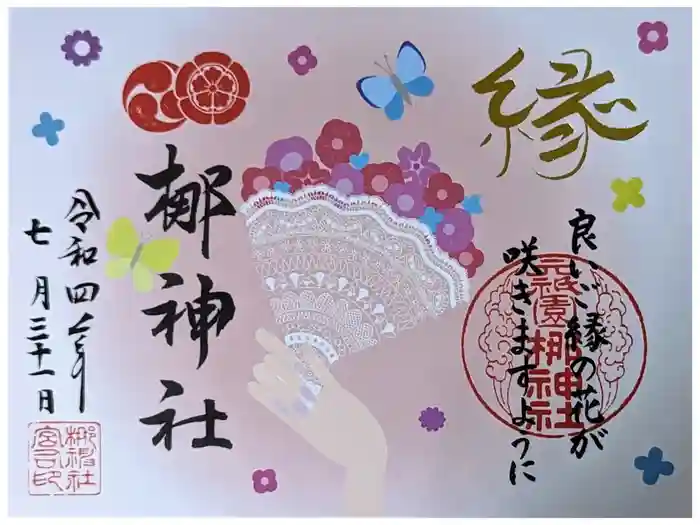 縁
良いご縁の花が
咲きますように
元祇園梛神社
梛神社
令和四年
七月三十一日
梛神社
宮司印